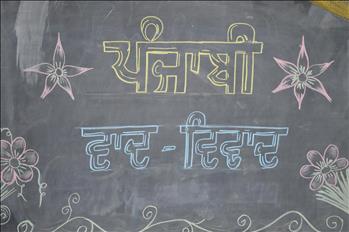 ਪੰਜਾਬੀ
ਵਾਦ - ਵਿਵਾਦ